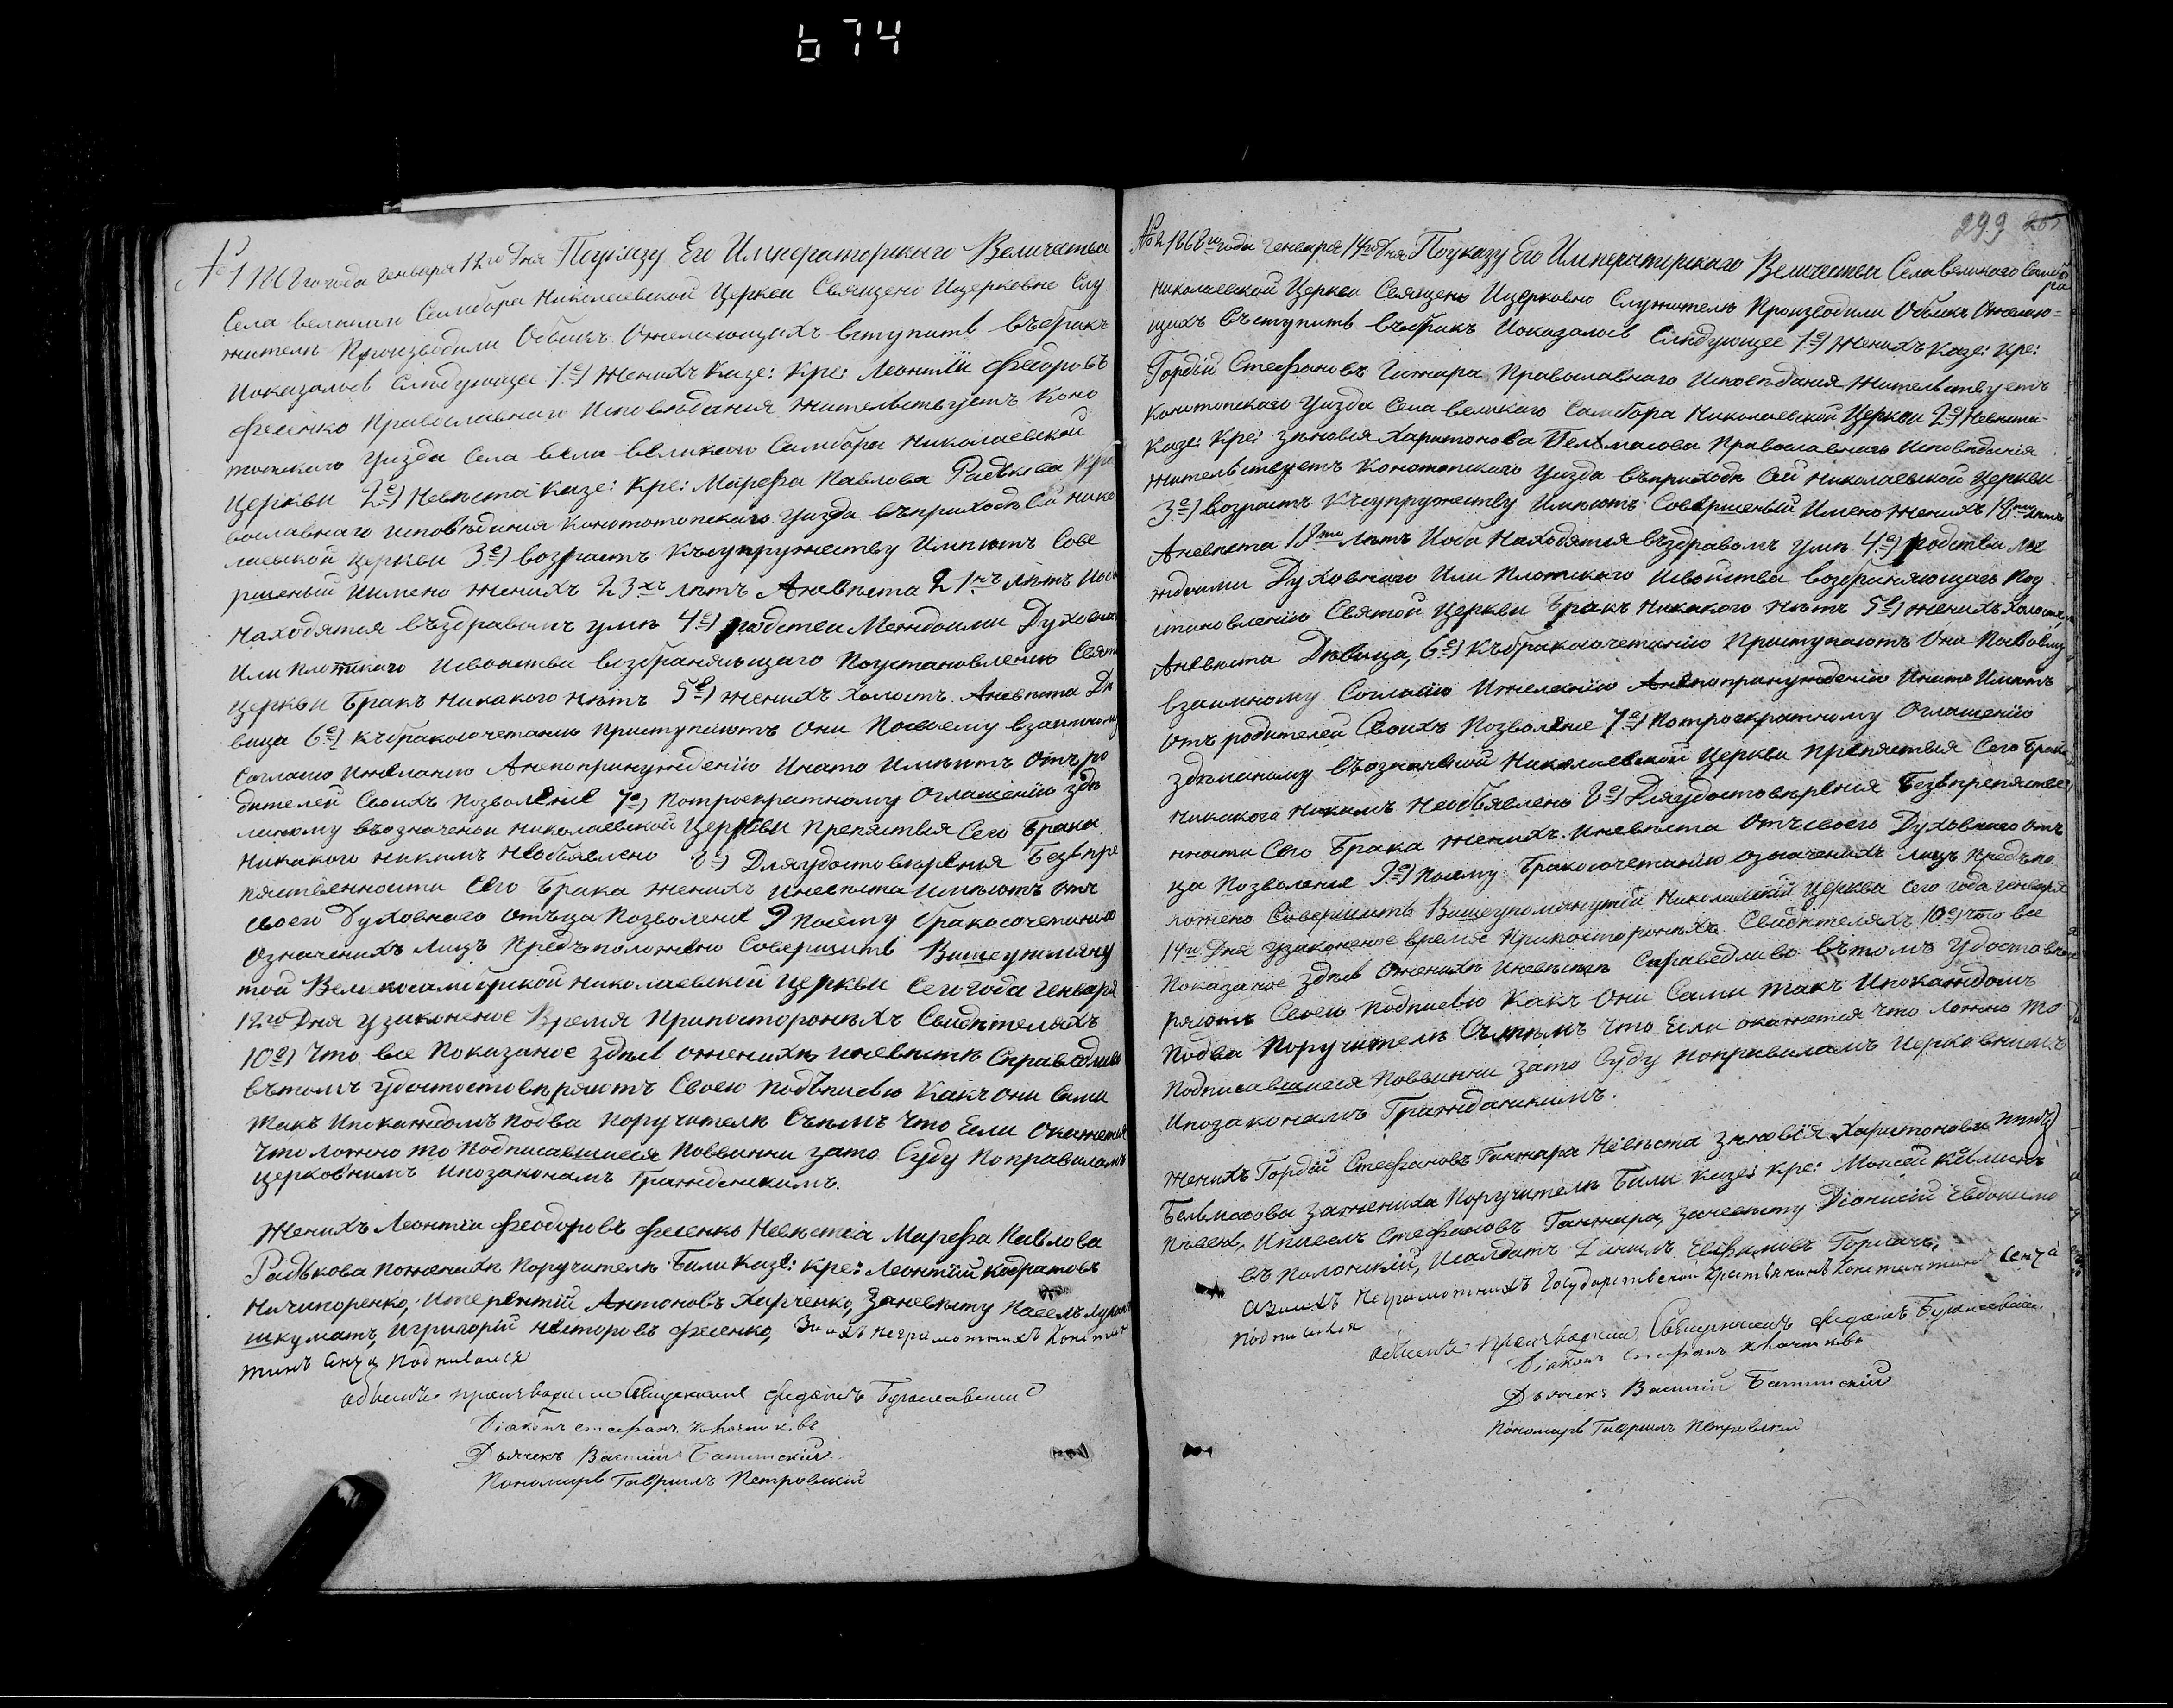 674
№ 1 1862 года Генваря 12го Дня Поуказу Его Императорскаго Величества
Села великаго Самбора Николаевской Церкви Священо Ицерковно Слу
жителѣ Производили Обыскъ Ожелающихъ вступить въбракъ
Иоказалось Слѣдующее 1е) Женихъ Казе: Кре: Леонтій Феодоровъ
Фесенко Православнаго Исповѣдания жительствуетъ Коно
топскаго Уизда Села вели великаго Самбора Николаевской
Церкви 2е) Невѣста Казе: Кре: Марефа Павлова Радькова Пра
вославнаго исповѣдания Конототопскаго Уизда въприходѣ Сей Нико
лаевской Церкви 3е) возрастъ Късупружеству Имѣютъ Сове
ршеный Иимено женихъ 23хъ лѣтъ Аневѣста 21нъ лѣтъ Иоба
Находятся въздравомъ умѣ 4е) родства Междоими Духовнаго
Или Плотскаго Исвойства возбраняющаго Поустановлению Святой
Церкви Бракъ никакого нѣтъ 5е) женихъ холостъ Аневѣста Дѣ
вица 6е) Къбракосочетанию Приступаютъ Они Посвоему взаимному
Согласию Ижеланию Анепопринуждению Инато Имѣютъ Отъро
дителей Своихъ Позволение 7е) Потроекратному Оглашению здѣ
ланому въозначеной Николаевской Церкви Препяствия Сего Брака
Никакого никимъ Необъявлено 8е) Дляудостовѣрения Безпре
пяственности Сего Брака женихъ иневѣста Имѣютъ Отъ
своего Духовнаго Отъца Позволение 9 Посему бракосочетанию
Означенихъ Лицъ Предъположено Совершить Вишеупомяну
той Великосамбурской Николаевской Церкви Сего года Генваря
12го Дня узаконеное Время Припосторонѣхъ Свидѣтеляхъ
10е) Что все Показаное здѣсь оженихѣ иневѣстѣ Справедливо
вътомъ удостостовѣряютъ Своею Подъписью Какъ они Сами
Такъ Ипокаждомъ подва Поручителѣ Сътѣмъ Что Если Окажется
Что ложно то Подписавшиеся Повинни зато Суду Поправиламъ
Церковнимъ ипозаконамъ Гражданскимъ.
Женихъ Леонтій Феодоровъ Фесенко Невѣста Марефа Павлова
Радькова Поженихѣ Поручителѣ Били Казе: Кре: Леонтій Кодратовъ
Ничипоренко, Итерентій Антоновъ Харченко, Заневѣсту Павелъ
шкуматъ, Игригорій Несторовъ Фесенко, Заихъ неграмотнихъ Констан
тинъ Подписался
Обыскъ производили Священникъ Феодотъ Буяславский
Діаконъ Стефанъ
Дьячекъ Василий
Пономарь Гавриилъ Петровский
299
№ 2 1862го года Генваря 14го Дня Поуказу Его Императорскаго Величества Села великаго Самбо
ра
Николаевской Церкви Священо Ицерковно Служителѣ Производили Обыскъ Ожелаю=
щихъ въступить въбракъ Иоказалось Слѣдующее 1е) Женихъ Казе: Кре:
Гордій Стефановъ Ганжара Православнаго Исповѣдания Жительствуетъ
Конотопскаго Уизда Села великаго Самбора Николаевской Церкви 2е) Невѣста
Казе: Кре: зиновия Харитонова Бельмасова Православнаго Исповѣдания
жительствуетъ Конотопскаго Уизда въприходѣ Сей Николаевской Церкви
3е) возрастъ Късупружеству Имѣютъ Совершеный Имено женихъ 18ти лѣтъ
Аневѣста 18ти лѣтъ Иоба Находятся въздравомъ умѣ 4е) родства ме
ждоими Духовнаго Или Плотскаго Исвойства возбраняющаго Поу
становлению Святой Церкви Бракъ Никакого нѣтъ 5е) женихъ холостъ
Аневѣста Дѣвица, 6е) Къбракосочетанию Приступаютъ Они Посвоему
взаимному Согласию Ижеланию Анепопринуждению Инато Имѣютъ
Отъ родителей Своихъ Позволение 7е) Потроекратному Оглашению
здѣланому въозначеной Николаевской Церкви Препяствия Сего Брака
Никакого Никимъ Необъявлено 8е) Дляудостовѣрения Безпрепяствен
нности Сего Брака женихъ Иневѣста Отъсвоего Духовнаго Отъ
ца Позволение 9е) Посему Бракосочетанию означенихъ лицъ Предъпо
ложено Совершить Вишеупомянутій Николаевской Церкви Сего года Генваря
14го Дня узаконеное время Припосторонѣхъ Свидѣтеляхъ 10е) что все
Показаное здѣсь оженихѣ иневѣстѣ Справедливо вътомъ удостовѣ
ряютъ Своею Подписью Какъ Они Сами Такъ Ипокаждомъ
Подва Поручителѣ Сътѣмъ Что Если окажется что ложно то
Подписавшиеся Повинни зато Суду Поправиламъ Церковнимъ
Ипозаконамъ Гражданскимъ.
Женихъ Гордій Стефановъ Ганжара Невѣста зиновія Харитонова
Бельмасова Зажениха Поручителѣ Били Казе: Кре: Моисей
Ипавелъ Стефановъ Ганжара, Заневѣсту Діонисій Евдокимо
въ Полонский, Исалдатъ Ефимовъ
Азаихъ Неграмотнихъ Государственой Крестьянинъ Константинъ
Подписался
Обыскъ производили Священникъ Феодотъ Буяславский
Діаконъ Стефанъ
Дьячекъ Василий
Пономарь Гавриилъ Петровский